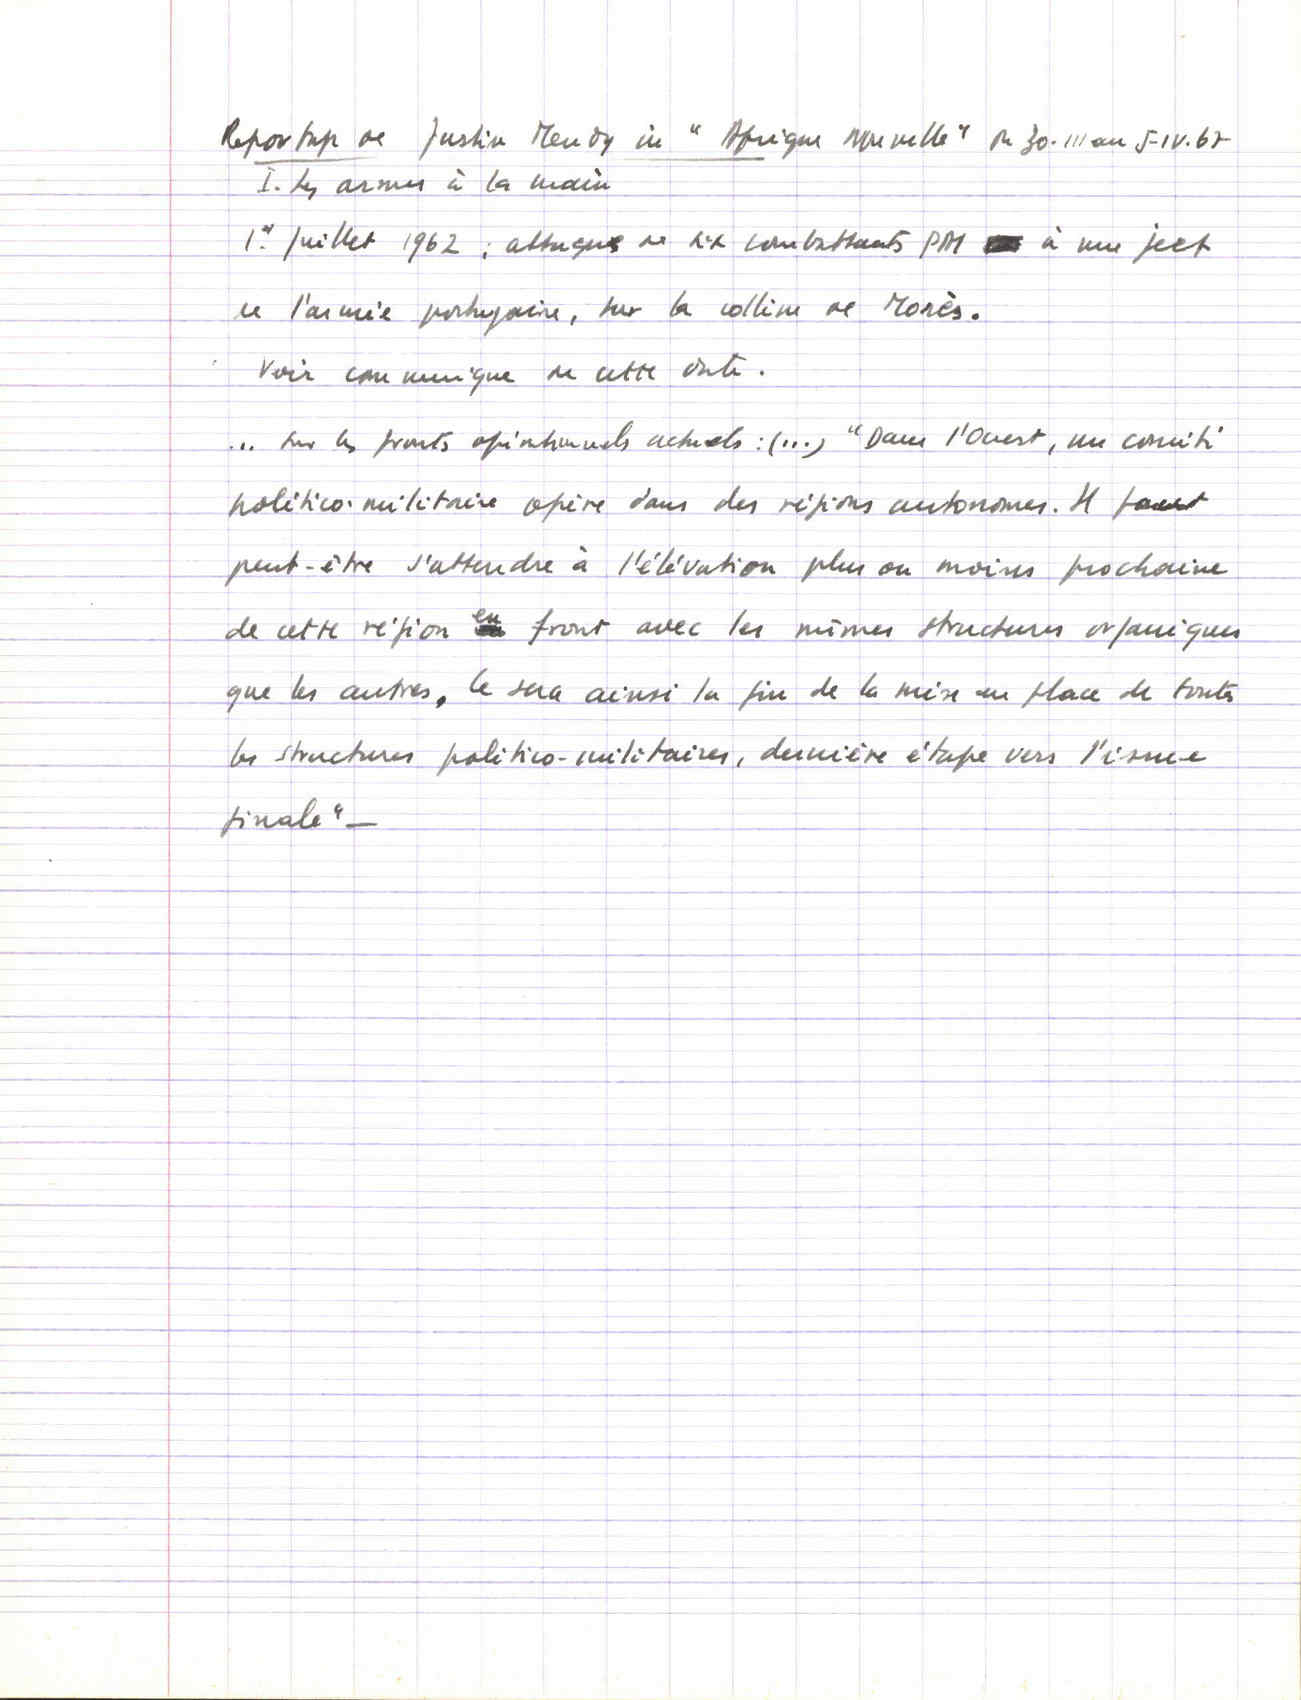 Reportage de Justin Mendy in "Afrique Nouvelle" du 30-III au 5-IV.67
I. Les armes à la main
1er juillet 1962 : attaque de six combattants PAI à une jeep
de l'armée portugaise, sur la colline de Morès.
Voir communiqué de cette date.
... sur les fronts opérationnels actuels : (...) "Dans l'Ouest, un comité
politico-militaire opère dans des régions autonomes. Il faut
peut-être s'attendre à l'élévation plus ou moins prochaine
de cette région en front avec les mêmes structures organiques
que les autres. Ce sera ainsi la fin de la mise en place de toutes
les structures politico-militaires, dernière étape vers l'issue
finale" —